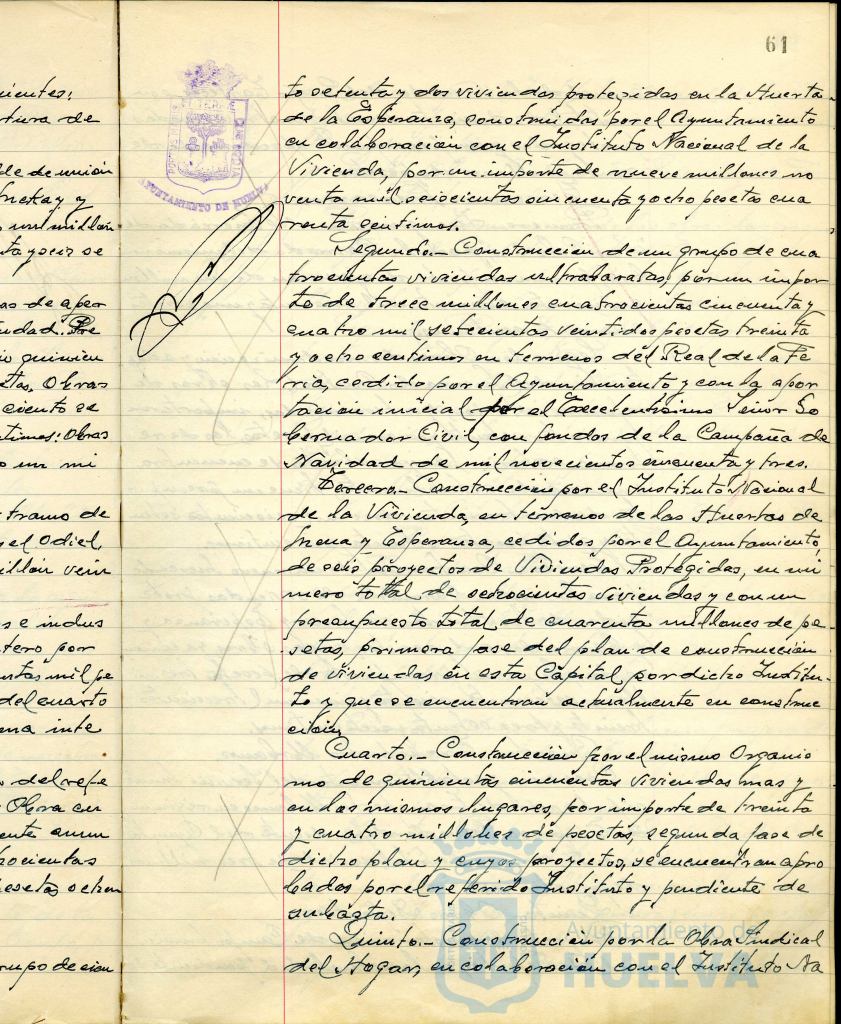 61
nientes:
tura de
de de unión
y
un millón
ta y seis se
as de aper
udad. Pre
io quinien
etas, Obras
ciento se
ntimos: Obras
o un mi
tramo de
y el Odiel,
illón vein
s e indus
tero por
ntas mil pe
del cuarto
ma inte
o del refe
Obra en
ente aum
rocientas
pesetas ochen
rupo de cien
PORTUS MARIS ET TERRE CUSTODIA
AYUNTAMIENTO DE HUELVA
to setenta y dos viviendas protegidas en la Huerta
de la Esperanza, construidas por el Ayuntamiento
en colaboración con el Instituto Nacional de la
Vivienda, por un importe de nueve millones no
venta mil seiscientos cincuenta y ocho pesetas cua
renta céntimos.
Segundo.- Construcción de un grupo de cua
trocientas viviendas ultrabaratas, por un impor
te de trece millones cuatrocientas cincuenta y
cuatro mil setecientas veintidos pesetas treinta
y ocho centimos en terrenos del Real de la Fe
ria, cedido por el Ayuntamiento y con la apor
tación inicial por el Excelentísimo Señor Go
bernador Civil, con fondos de la Campaña de
Navidad de mil novecientos cincuenta y tres.
Tercero.- Construcción por el Instituto Nacional
de la Vivienda, en terrenos de las Huertas de
Mena y Esperanza, cedidos por el Ayuntamiento,
de seis proyectos de Viviendas Protegidas, en nú
mero total de ochocientas viviendas y con un
presupuesto total de cuarenta millones de pe-
setas, primera fase del plan de construcción
de viviendas en esta Capital por dicho Institu-
to y que se encuentran actualmente en construc
ción.
Cuarto.- Construcción por el mismo Organis
mo de quinientas cincuentas viviendas mas y
en los mismos lugares, por importe de treinta
y cuatro millones de pesetas, segunda fase de
dicho plan y cuyos proyectos, se encuentran apro
bados por el referido Instituto y pendiente de
subasta.
Quinto.- Construcción por la Obra Sindical
del Hogar, en colaboración con el Instituto Na
Ayuntamiento de
HUELVA